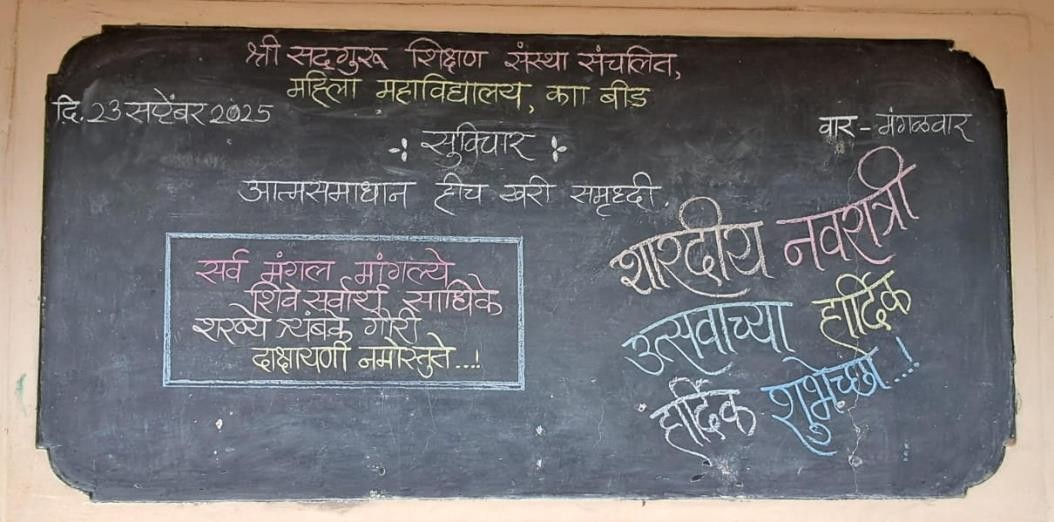 श्री सद्गुरू शिक्षण संस्था संचलित,
महिला महाविद्यालय, का बीड
दि. 23 सप्टेंबर 2025
वार - मंगळवार
सुविचार
आत्मसमाधान हीच खरी समृध्दी.
सर्व मंगल मांगल्ये
शिवे सर्वार्थ साधिके
शरण्ये त्र्यंबके गौरी
दाक्षायणी नमोस्तुते...!
शारदीय नवरात्री
उत्सवाच्या हार्दिक
हार्दिक शुभेच्छा...!